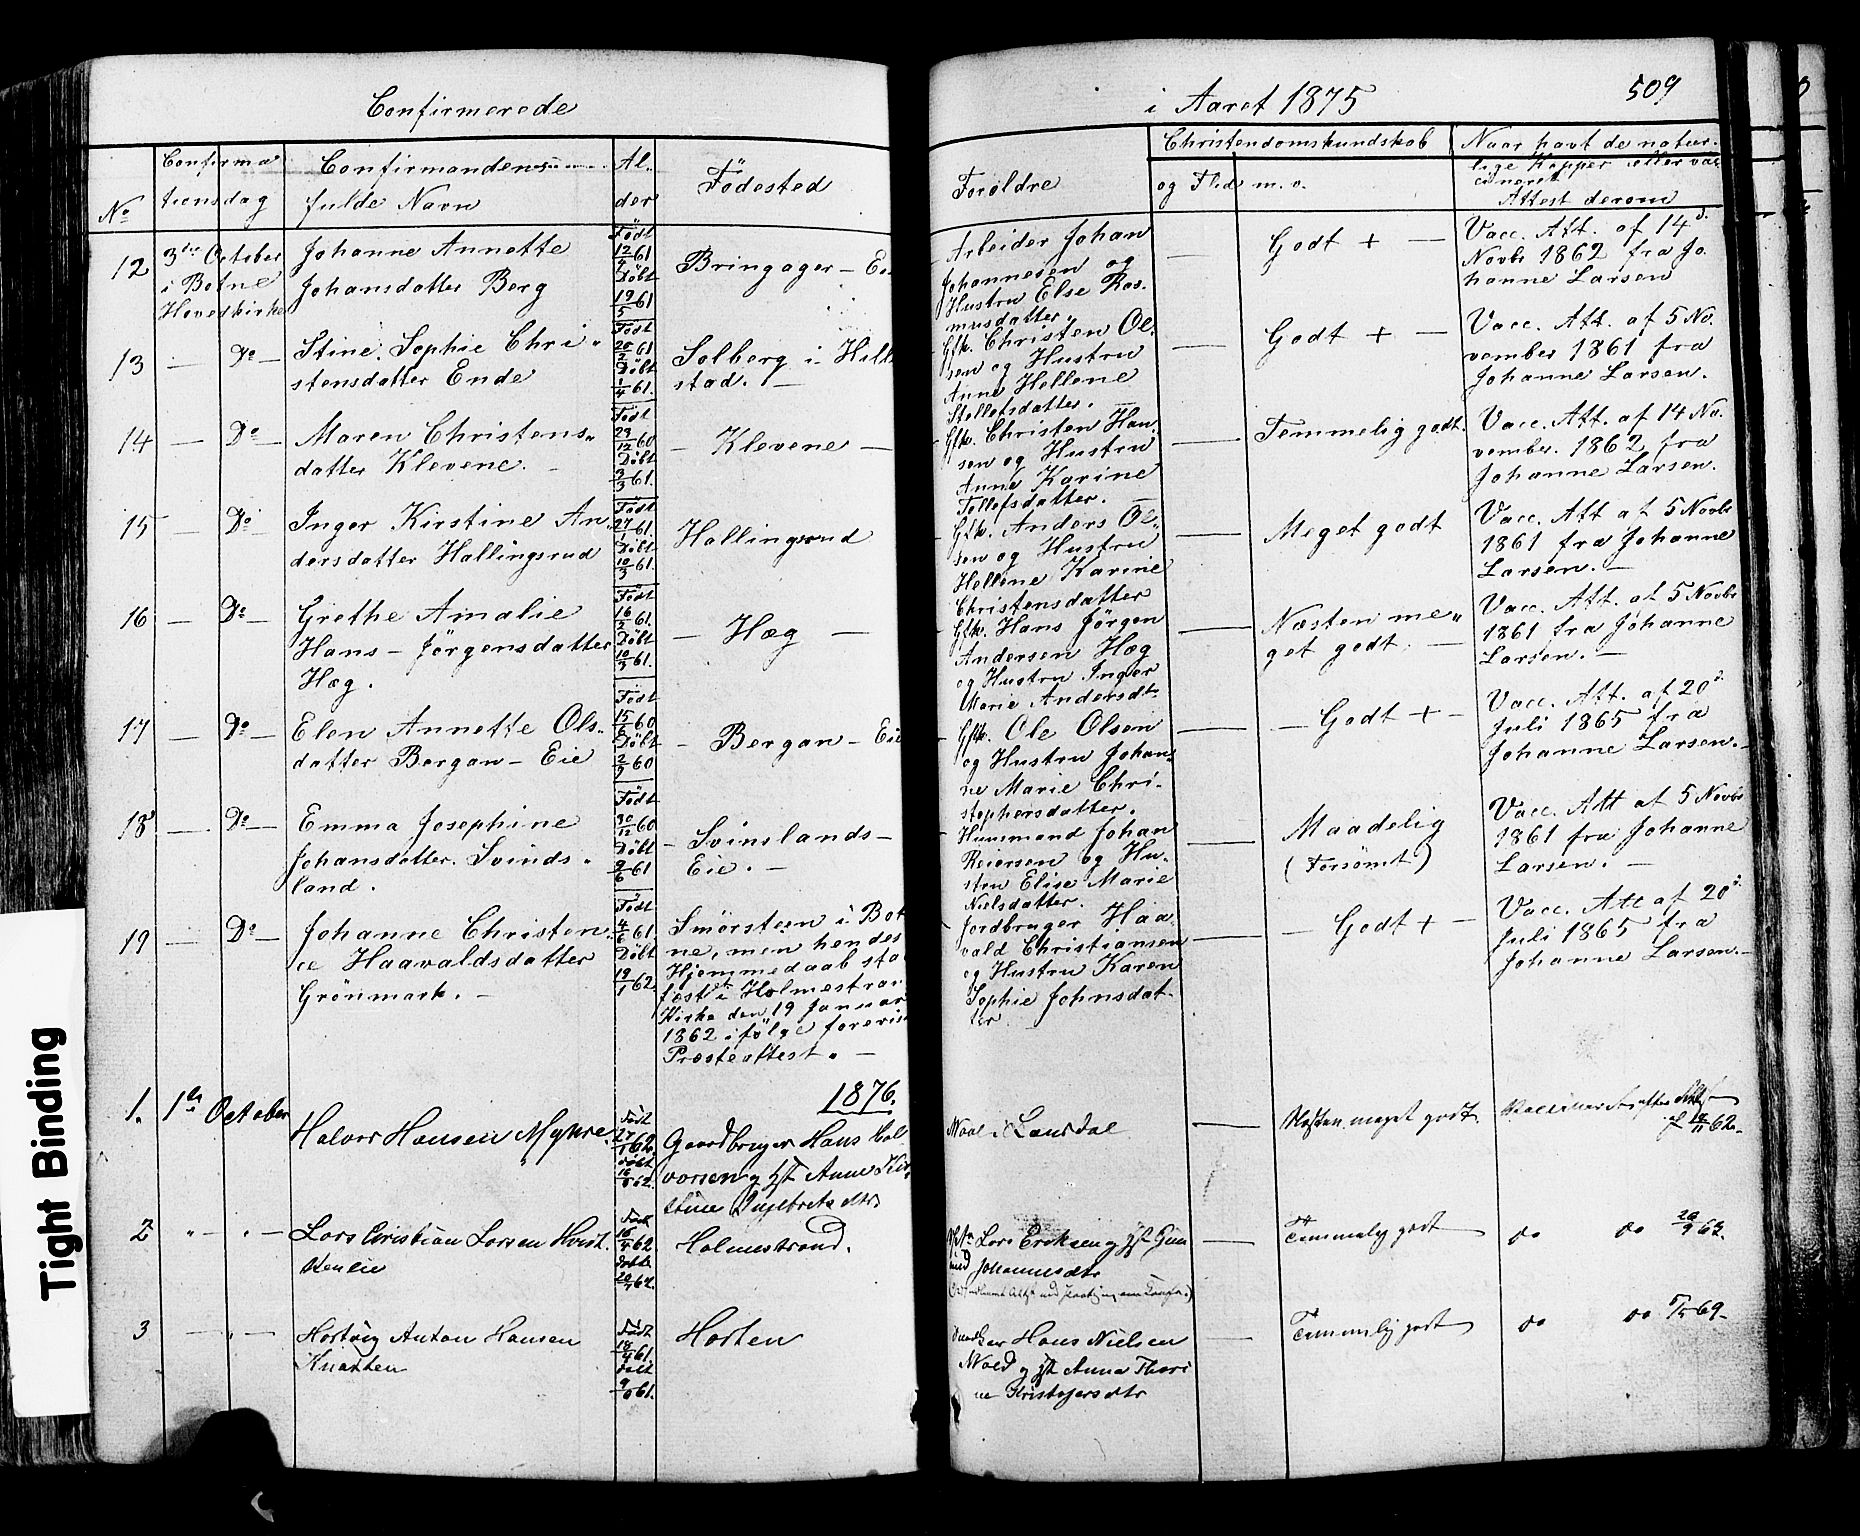 Confirmerede
i Aaret 1875
509
No
Confirma
tionsdag
Confirmandens
fulde Navn
Al-
der
Födested
Forældre
Christendomskundskab
og Flid m. v.
Naar havt de natur-
lige Kopper eller vac
cineret
Attest derom
12
3die October
i Botne
Hovedkirke
Johanne Annette
Johansdatter Berg
Födt
12/4 61
Döbt
19/5 61
Bringager - Eie
Arbeider Johan
Johannesen og
Hustru Else Ras-
musdatter.
Godt + —
Vacc. Att. af 14d.
Novbr 1862 fra Jo-
hanne Larsen
13 — Do —
Stine Sophie Chri-
stensdatter Ende
Födt
20/2 61
Döbt
1/4 61.
Solberg i Hille
stad. —
Gfk. Christen Ol-
sen og Hustru
Anne Hellene
Stollefsdatter. —
Godt + —
Vacc. Att. af 5 No-
vember 1861 fra
Johanne Larsen.
14 — Do —
Maren Christens-
datter Klevene. —
Födt
29/12 60
Döbt
3/3 61.
— Klevene —
Gfk. Christen Han-
sen og Hustru
Anne Karine
Tollefsdatter.
Temmelig godt.
Vacc. Att. af 14 No-
vember. 1862 fra
Johanne Larsen.
15 — Do
Inger Kirstine An-
dersdatter Hallingsrud
Födt
27/1 61
Döbt
10/3 61.
Hallingsrud
Gfk. Anders Ol-
sen og Hustru
Hellene Karine
Christensdatter
Meget godt
Vacc. Att af 5 Novbr
1861 fra Johanne
Larsen. —
16 — Do —
Grethe Amalie
Hans-Jörgensdatter
Hæg.
Födt
16/2 61.
Döbt
10/3 61.
— Hæg —
Gfk. Hans Jörgen
Andersen Hæg
og Hustru Inger
Marie Andersdtr
Næsten me-
get godt. —
Vacc. Att. af 5 Novbr
1861 fra Johanne
Larsen. —
17 — Do —
Elen Annette Ols-
datter Bergan - Eie
Födt
15/8 60
Döbt
2/9 60
— Bergan - Eie
Gfk. Ole Olsen
og Hustru Johan-
ne Marie Chri-
stophersdatter.
— Godt + —
Vacc. Att. af 20d.
Juli 1865 fra
Johanne Larsen. —
18 — Do —
Emma Josephine
Johansdatter Svinds-
land.
Födt
30/12 60
Döbt
2/6 61
— Svinslands -
Eie. —
Huusmand Johan
Reiersen og Hu-
stru Elise Marie
Nielsdatter.
Maadelig
(Forsömt)
Vacc. Att af 5 Novbr
1861 fra Johanne
Larsen. —
19 — Do —
Johanne Christen-
ce Haavaldsdatter
Grönmark. —
Födt
4/6 61.
Döbt
19/1 62.
Smörsteen i Bot
ne, men hendes
Hjemmedaab sta
fæst i Holmestran
Kirke den 19 Januar
1862 ifölge forevist
Presteattest. —
Jordbruger Haa-
vald Christiansen
og Hustru Karen
Sophie Johnsdat-
ter
— Godt + —
Vacc. Att af 20d.
Juli 1865 fra
Johanne Larsen. —
1876.
1. 1ste October
Halvor Hansen Myhre
Födt
27/1 62.
döbt
62.
Gaardbruger Hans Hal-
vorsen og Hst Anne Kir-
stine Ingebretsdtr
Næsten meget godt.
af 12/11 62.
2 " — " —
Lars Christian Larsen Hvit-
Födt
16/4 62
döbt
62.
Holmestrand.
Lars Eriksen og Hst Gun
hild Johannesdtr
Temmelig godt
do do 20/9 63.
3 — " —
Hartvig Anton Hansen
Knatten
Födt
18/4 61
döbt
61.
Horten
Hans Nielsen
Wold og Hst Anna Thori
ne Kristofersdtr
Temmelig godt
do do 5/5 69.
Tight Binding